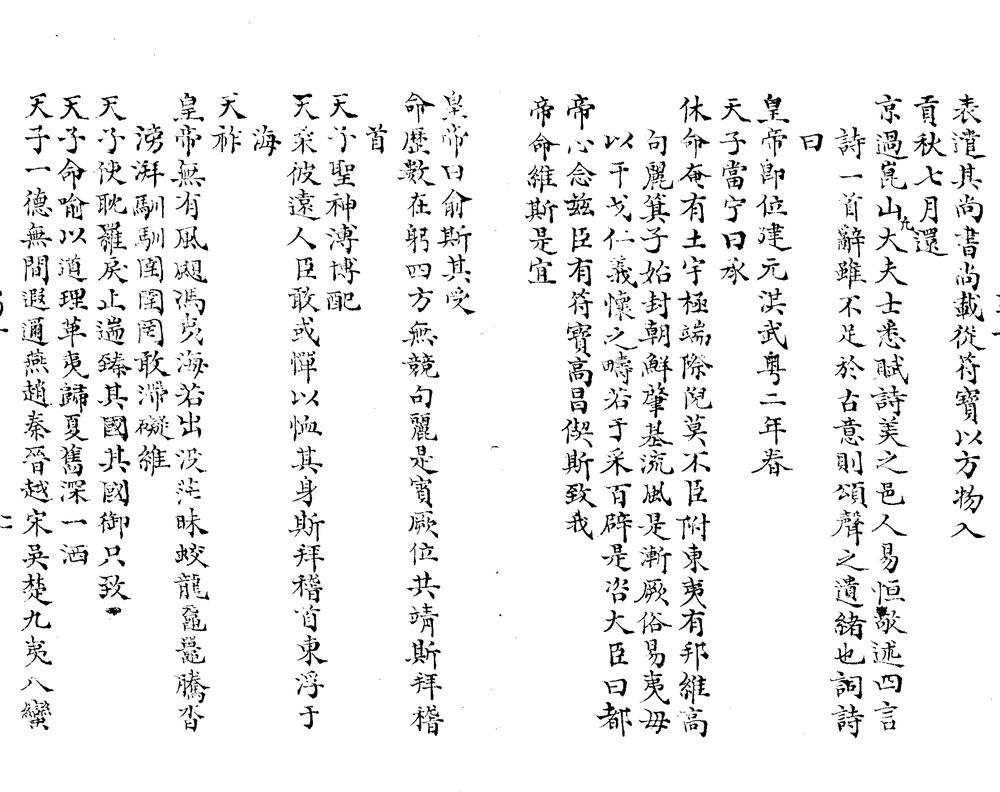 表遣其尚書尚載從符寶以方物入
貢秋七月還
京過崑山九大夫士悉賦詩美之邑人易恒敬述四言
詩一首辭雖不足於古意則頌聲之遺緒也詞詩
曰
皇帝即位建元洪武粤二年春
天子當宁曰承
休命奄有土宇極端際陒莫不臣附東夷有邦維高
句麗箕子始封朝鮮肇基流風是漸厥俗易夷毋
以干戈仁義懷之疇若于采百辟是咨大臣曰都
帝心念茲臣有符寶高昌偰斯致我
帝命維斯是宜
皇帝曰俞斯其受
命歷數在躬四方無競句麗是賓厥位共靖斯拜稽
首
天子聖神溥博配
天采彼遠人臣敢或憚以恤其身斯拜稽首東浮于
海
天祚
皇帝無有風颶馮夷海若出没茫昧蛟龍黿鼉騰沓
湧湃馴馴圉圉罔敢滯礙維
天子使耽羅戾止遄臻其國其國御只致
天子命喻以道理革夷歸夏舊深一洒
天子一德無間遐邇燕趙秦晉越宋吳楚九夷八蠻